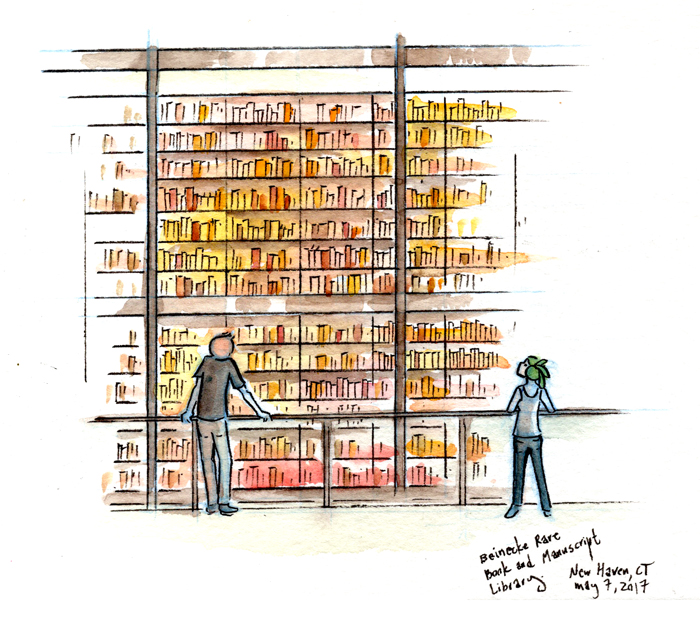 Beinecke Rare
Book and Manuscript
Library.
New Haven, CT
may 7, 2017